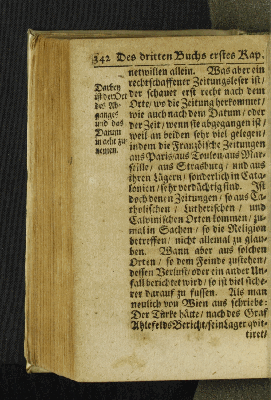 342 Des dritten Buchs erstes Kap.
netwillen allein. Was aber ein
rechtschaffener Zeitungsleser ist/
der schauet erst recht nach dem
Orte/ wo die Zeitung herkommet/
wie auch nach dem Datum / oder
der Zeit/ wenn sie abgegangen ist/
weil an beiden sehr viel gelegen/
indem die Französische Zeitungen
aus Paris/ aus Toulon/ aus Marseille/
aus Strasburg / und aus
ihren Lägern/ sonderlich in Catalonien/
sehr verdächtig sind. Ist
doch denen Zeitungen / so aus Catholischen /
Lutherischen / und
Calvinischen Orten kommen/ zumal
in Sachen / so die Religion
betreffen / nicht allemal zu glauben.
Wann aber aus solchen
Orten / so dem Feinde zustehen/
dessen Verlust/ oder ein ander Unfall
berichtet wird/ so ist viel sicherer
darauf zu fussen. Als man
neulich von Wien aus schriebe:
Der Türke hätte/ nach des Graf
Ahlefelds Bericht/ sein Lager qvit-
tiret/
Darbey
ist der Ort
des Abganges
und das
Datum
in acht zu
nemen.